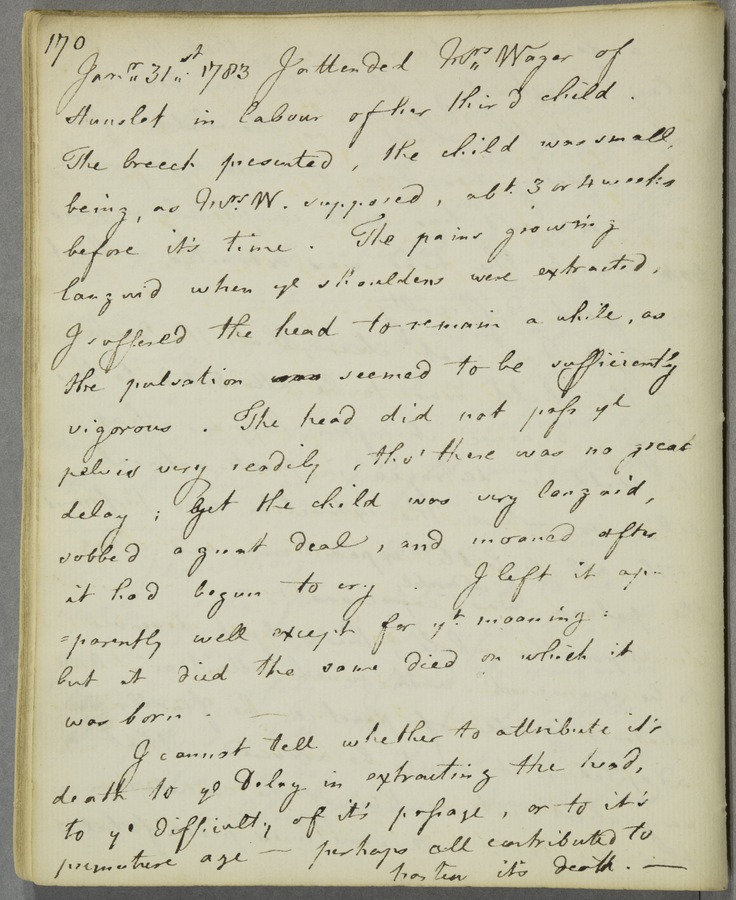 170
Jan.ry 31.st 1783 I attended Mrs. Wager of
Hunslet in labour of her third child.
The breech presented, the child was small,
being, as Mrs. W. supposed, abt. 3 or 4 weeks
before it's time. The pains growing
languid when ye shoulders were extracted,
I suffered the head to remain a while, as
the pulsation was seemed to be sufficiently
vigorous. The head did not pass ye
pelvis very readily, tho' there was no great
delay; yet the child was very languid,
sobbed a great deal, and moaned after
it had begun to cry. I left it ap-
=parently well except for yt. moaning:
but it died the same died on which it
was born. —
I cannot tell whether to attribute it's
death to ye Delay in extracting the head,
to ye difficulty of it's passage, or to it's
premature age — perhaps all contributed to
hasten it's death. —